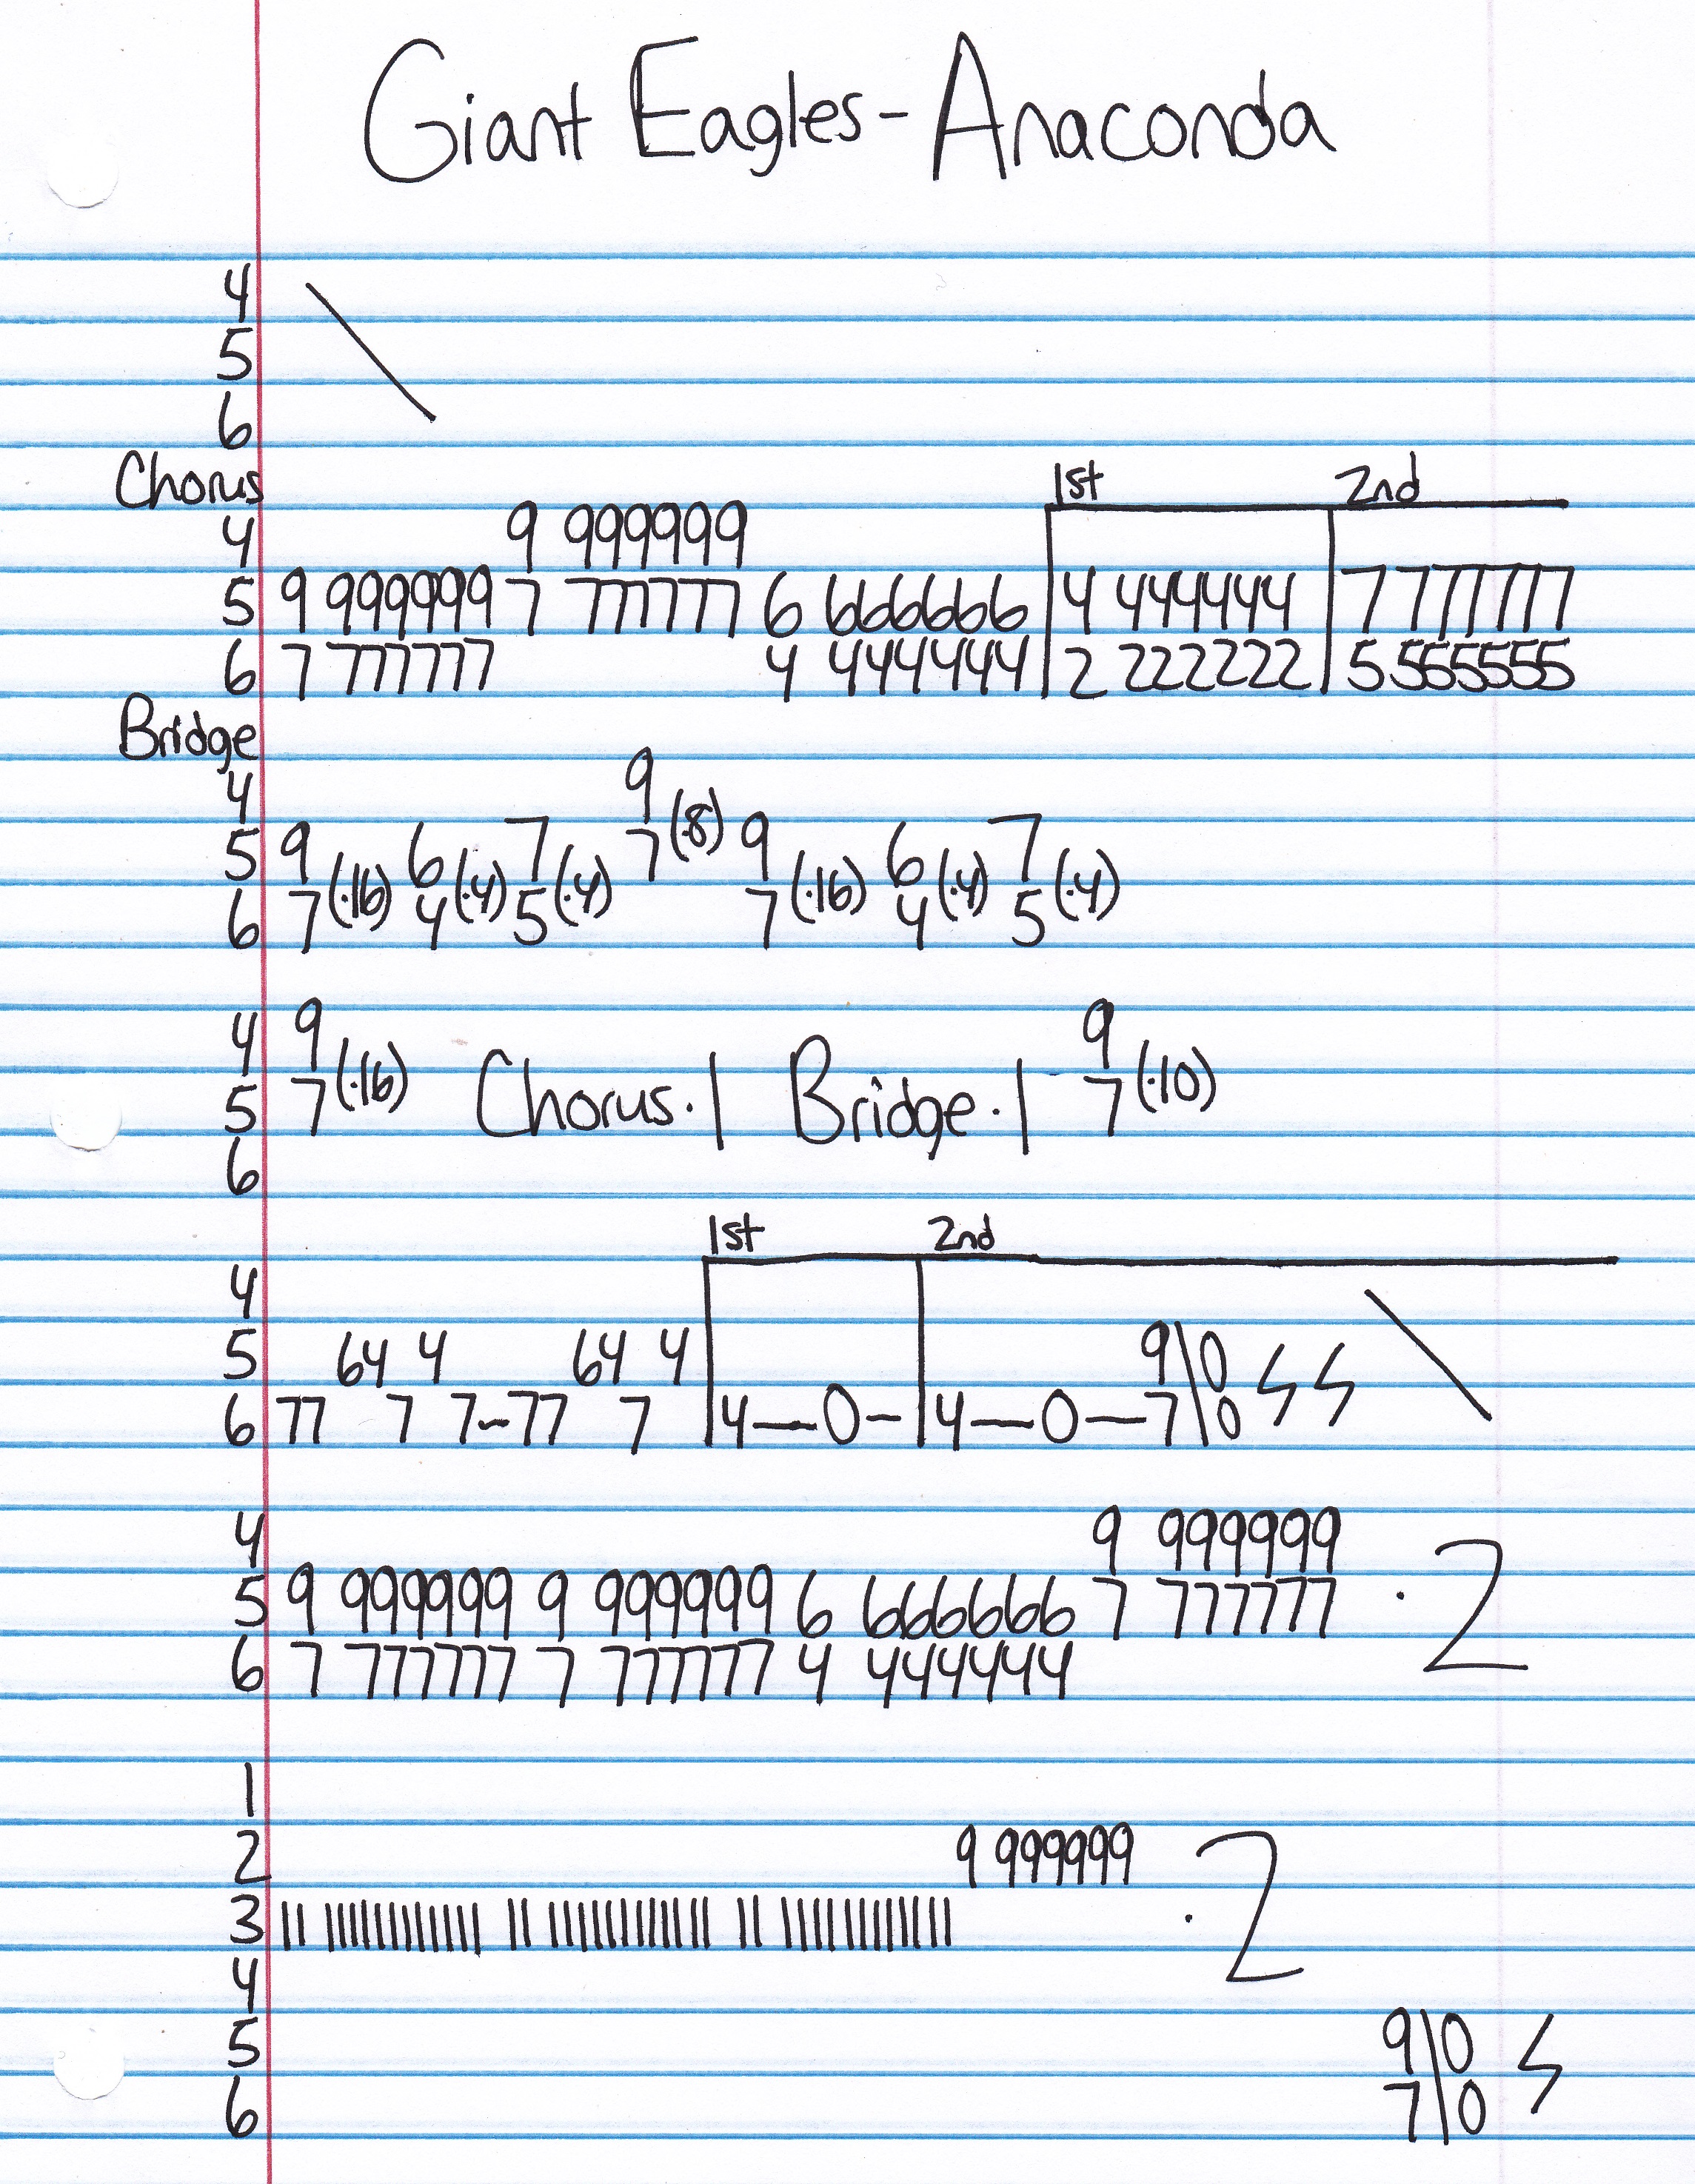 Giant Eagles - Anaconda
4 \
5
6
Chorus 1st 2nd
4 9 999999
5 9 999999 7 777777 6 666666 4 444444 7 777777
6 7 777777 4 444444 2 222222 5 555555
Bridge
4 9
5 9 6 7 7(·8) 9 6 7
6 7(·16) 4(·4) 5(·4) 7(·16) 4(·4) 5(·4)
4 9 9
5 7(·16) Chorus·1 Bridge·1 7(·10)
6
1st 2nd
4 \
5 64 4 64 4 9\0
6 77 7 7-77 7 4—0- 4—0—7\0
4 9 999999
5 9 999999 9 999999 6 666666 7 777777 ·2
6 7 777777 7 777777 4 444444
1
2 9 999999
3 ·2
4
5 9\0
6 7\0